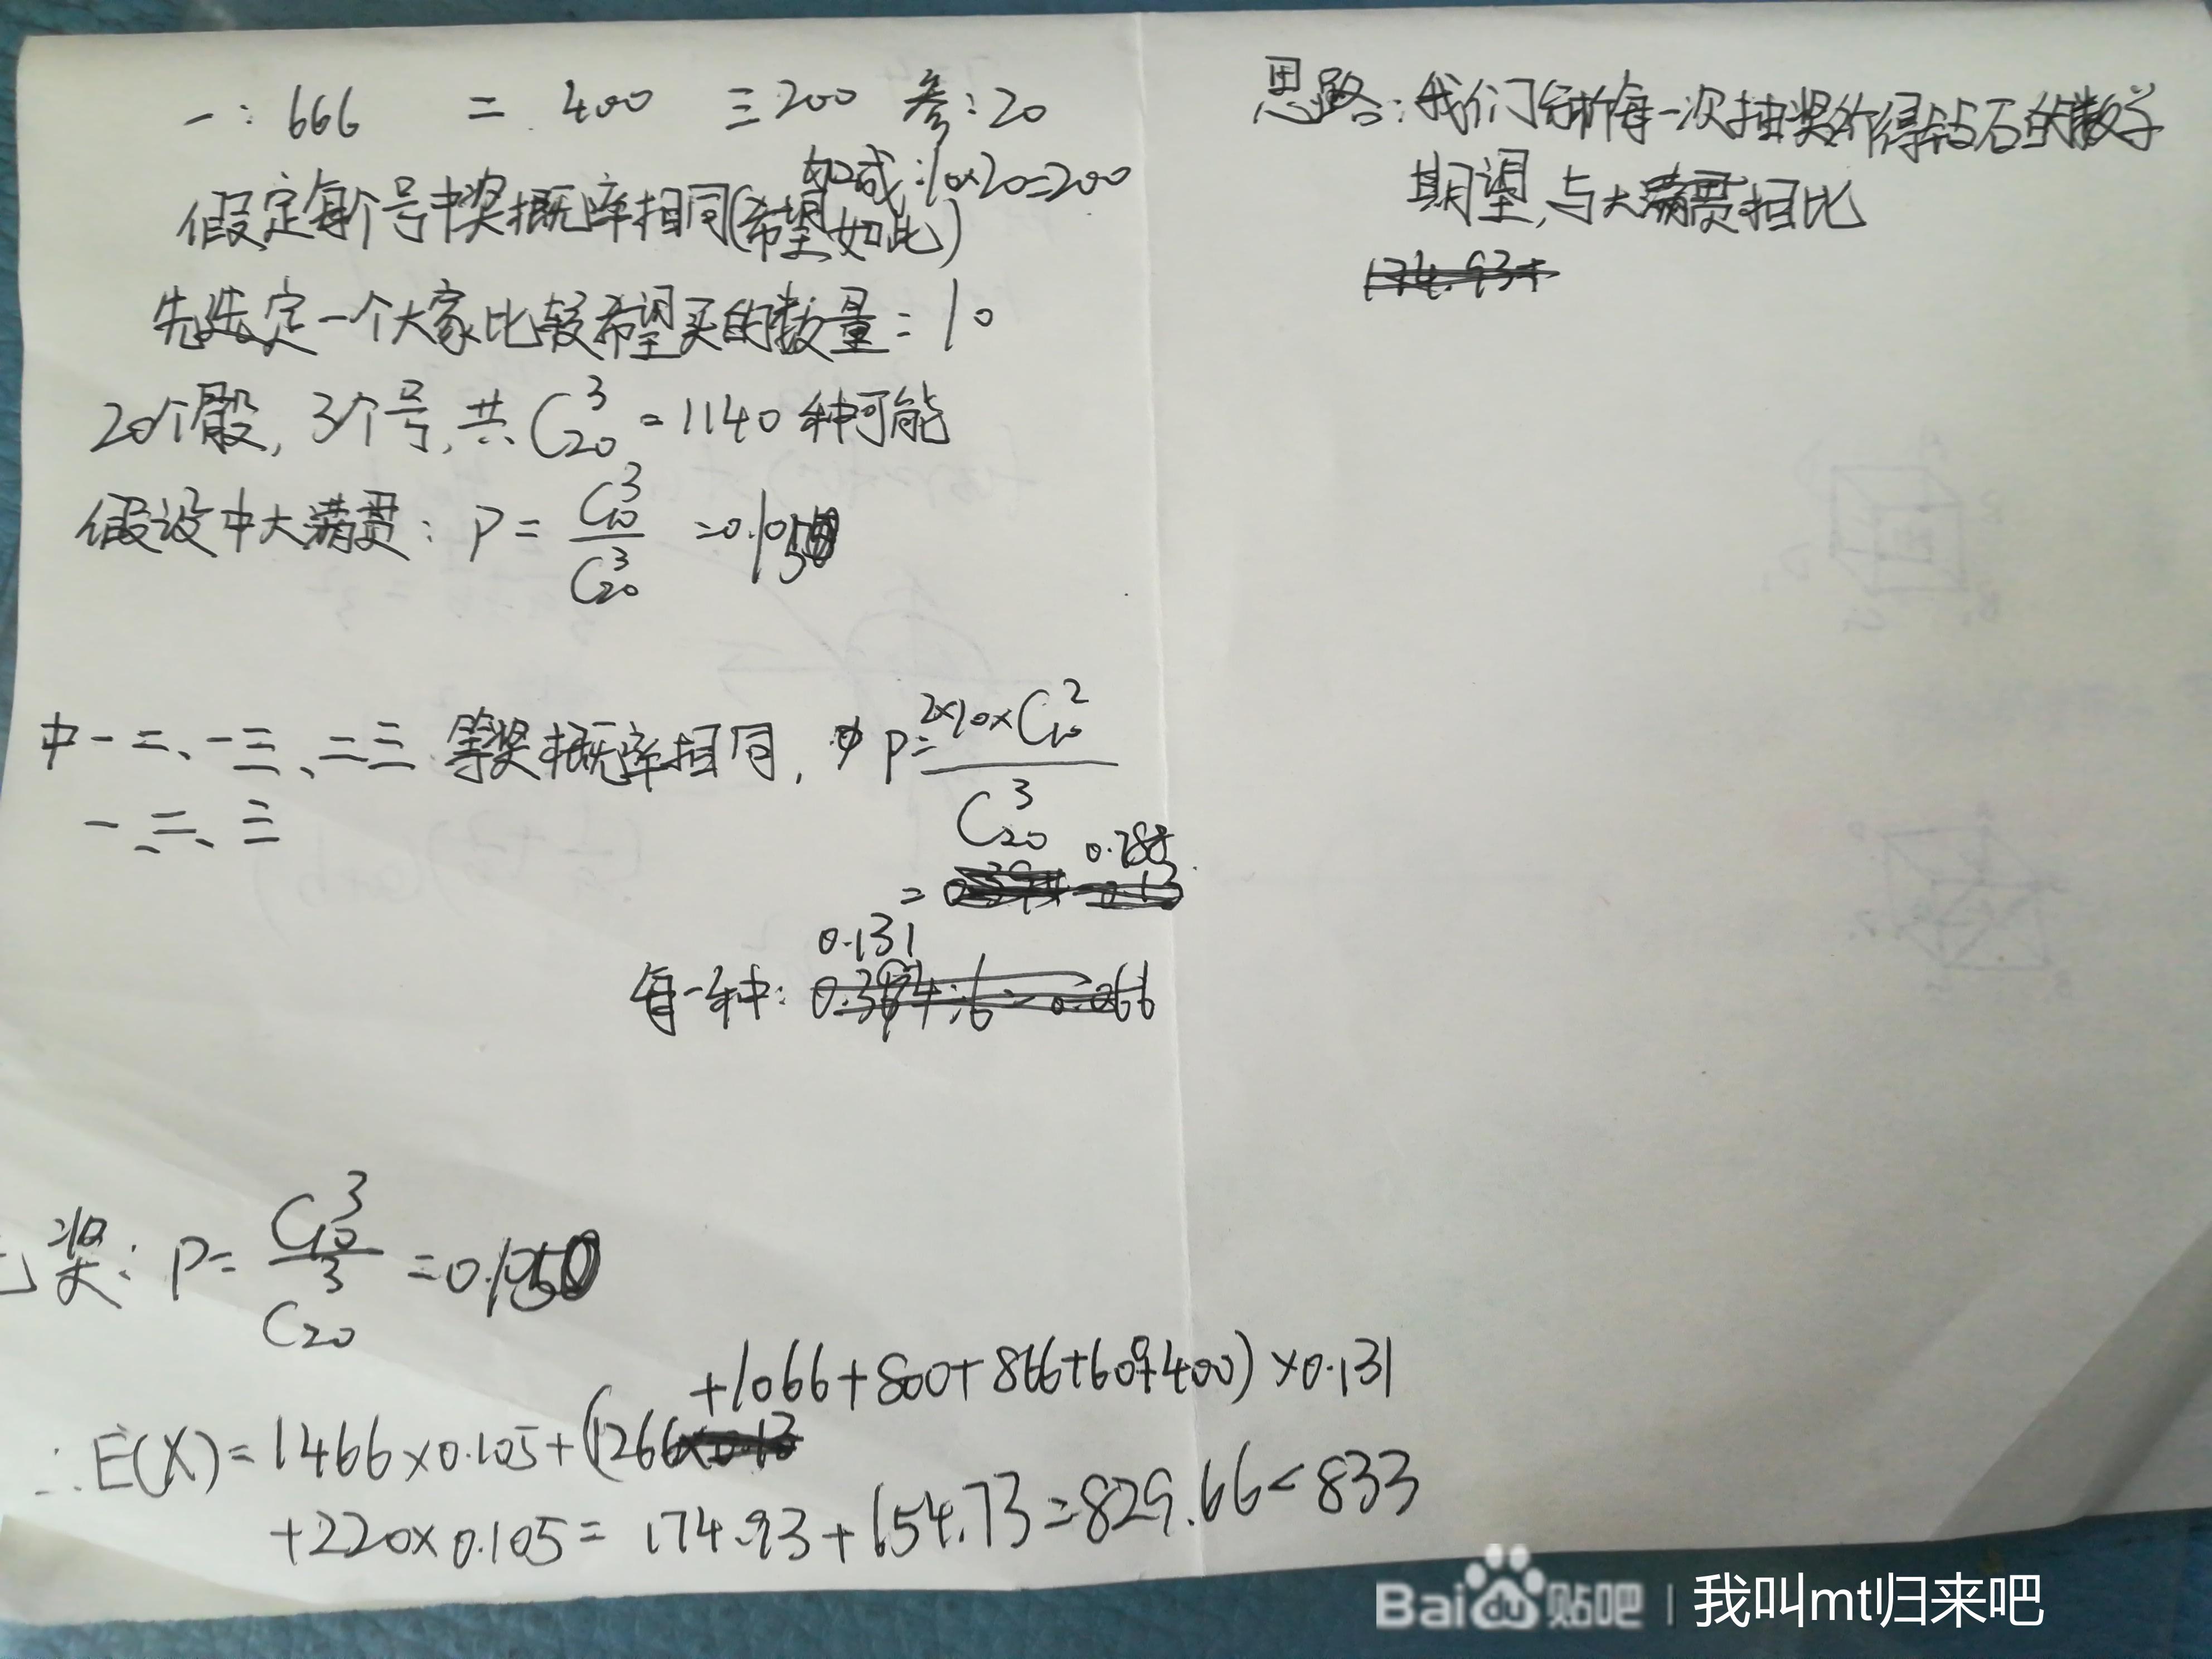 一:666 二 400 三 200 参:20
如减:10×20=200
假定每个号中奖概率相同(希望如此)
先选定一个大家比较希望买的数量:10
20个骰,3个号,共C₂₀³=1140种可能
假设中大满贯:P=C₁₀³/C₂₀³=0.105
中一二、一三、二三等奖概率相同,P=2×10×C₁₀²/C₂₀³
一、二、三
=0.788
每一种:0.131
奖:P=C₁₀³/C₂₀³=0.105
∴E(X)=1466×0.105+(1266+1066+800+866+600+400)×0.131
+220×0.105=174.93+654.73=829.66<833
思路:我们分析每一次抽奖所得钻石的数学
期望,与大满贯相比
174.93+
Baidu贴吧 | 我叫mt归来吧